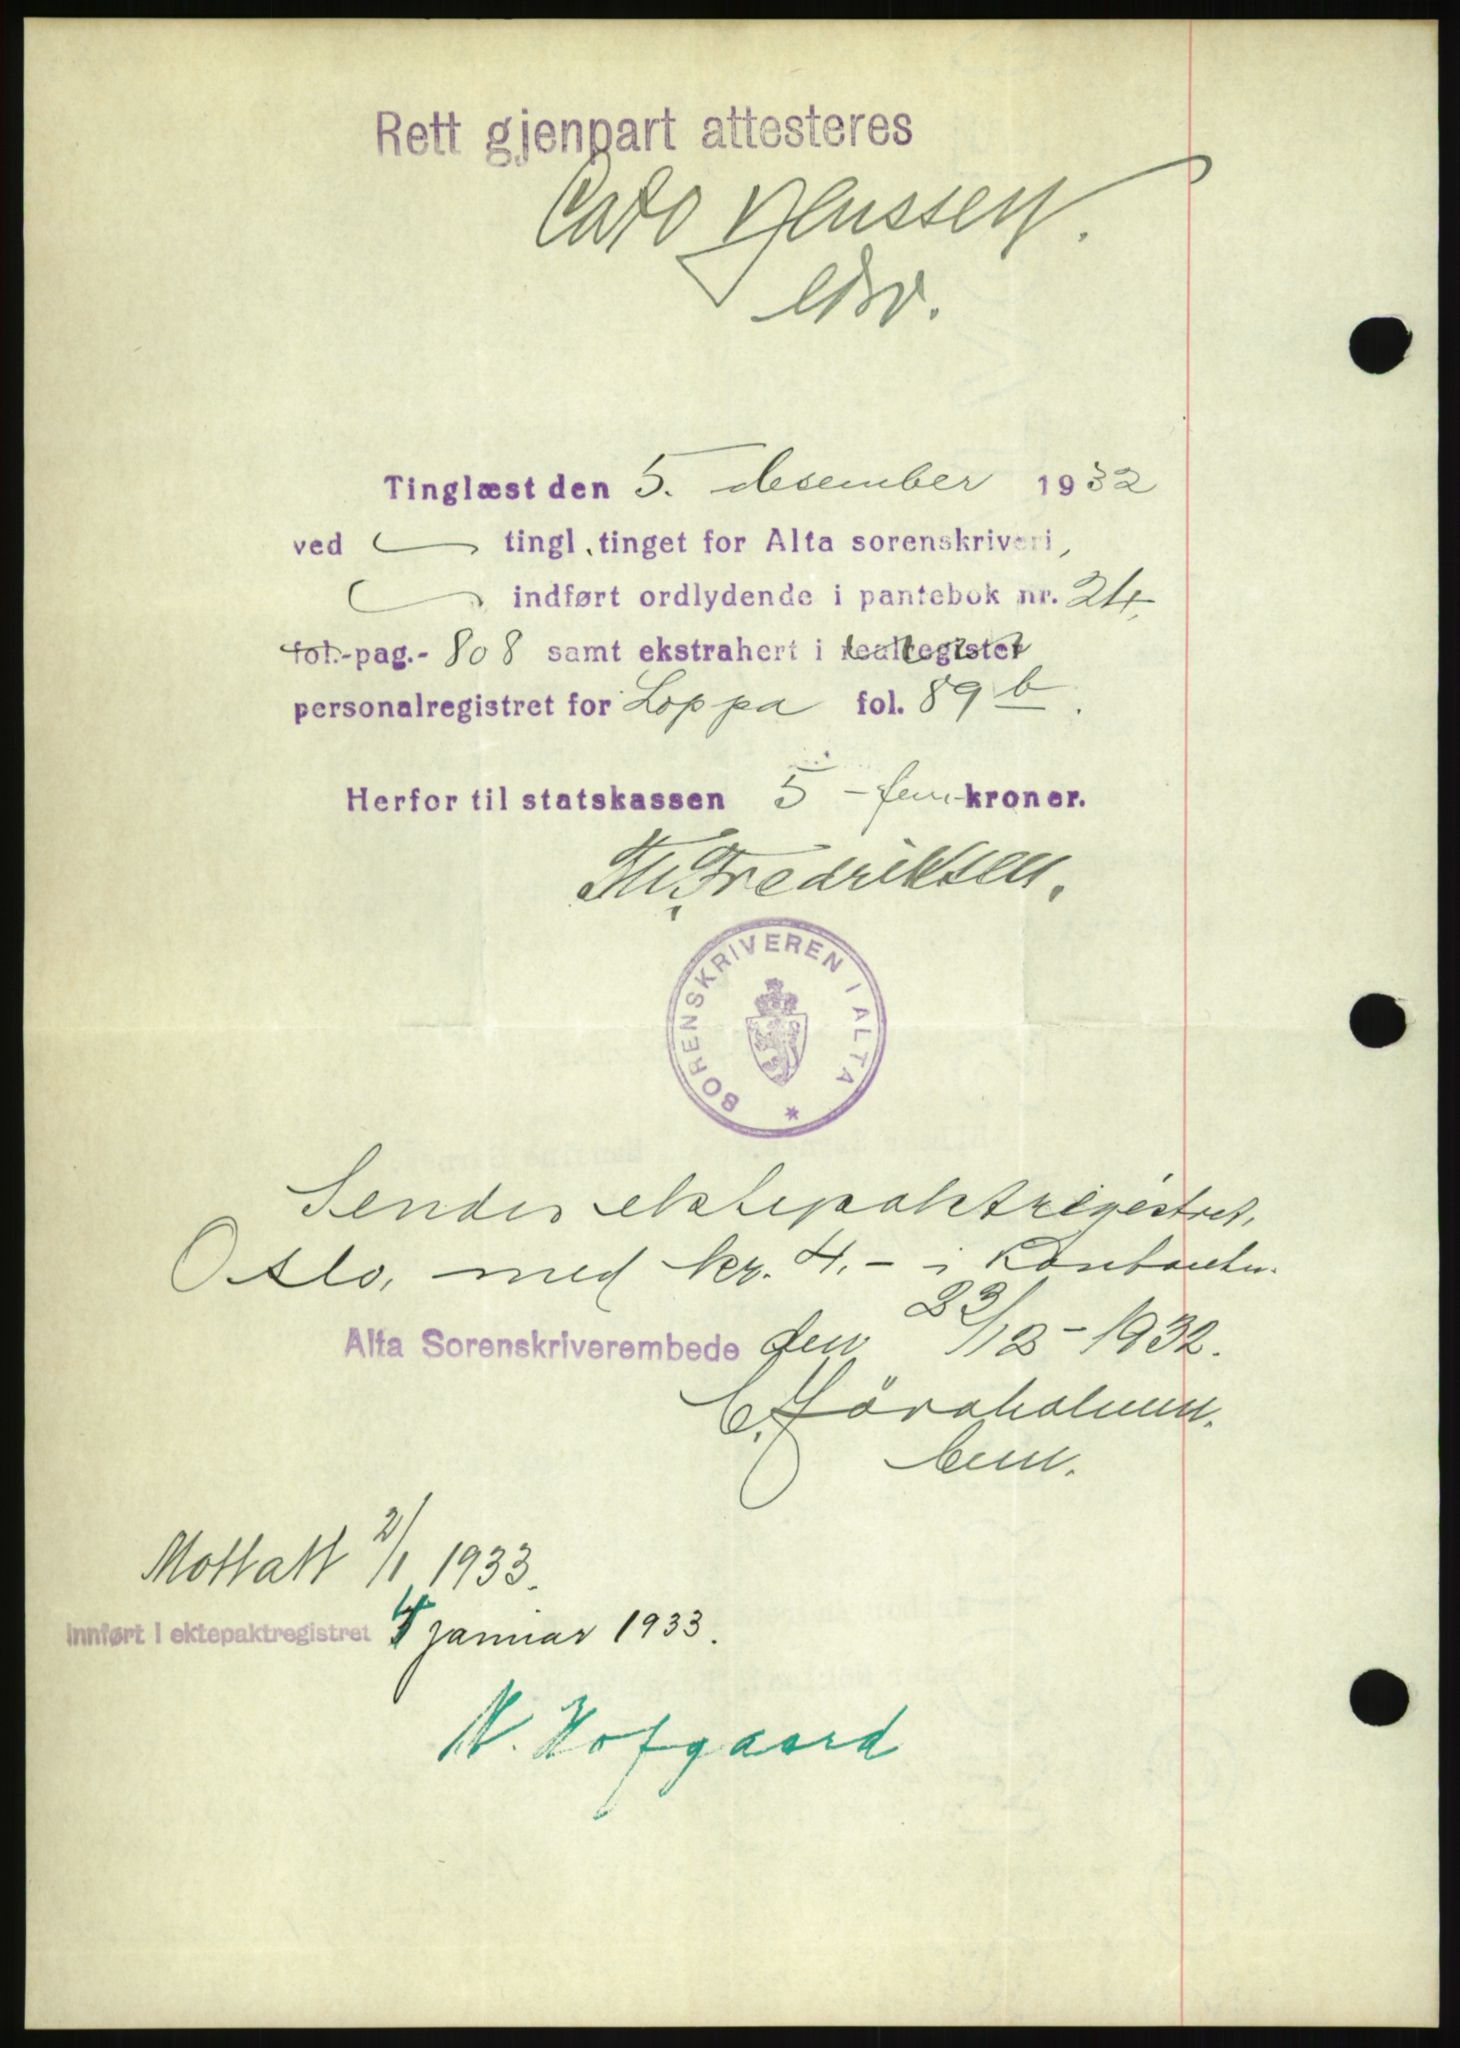 Rett gjenpart attesteres
Cato Jenssen.
Tinglæst den 5. desember 1932
ved tingl. tinget for Alta sorenskriveri,
indført ordlydende i pantebok nr. 24,
fol.-pag.- 808 samt ekstrahert i realregistet
personalregistret for Loppa fol. 89 b.
Herfor til statskassen 5 - fem - kroner.
Th. Fredriksen.
SORENSKRIVEREN I ALTA *
Sendes ektepaktregistret,
Oslo, med kr. 4.- i kontanter.
Alta Sorenskriverembede den 23/12 - 1932.
Mottatt 2/1 1933.
Innført i ektepaktregistret 4 januar 1933.
N. Hofgaard